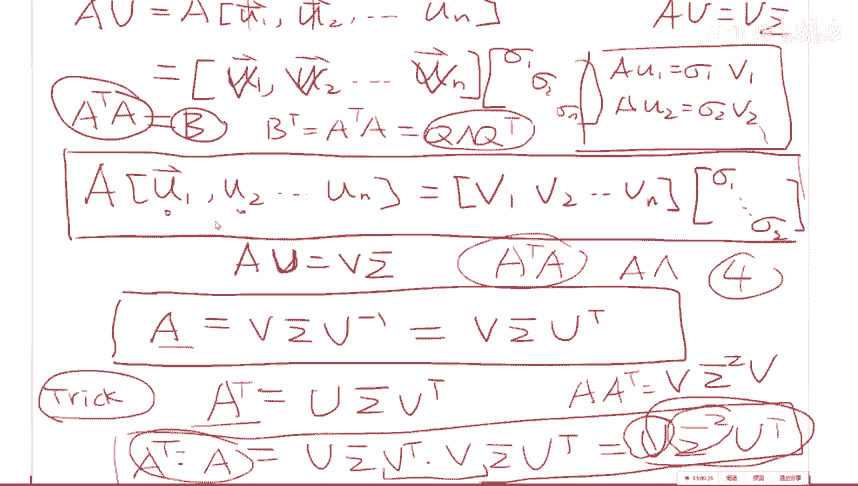 AU = A[u⃗₁, u⃗₂, ... uₙ] AU = VΣ
= [V⃗₁, V⃗₂ ... V⃗ₙ] [σ₁ σ₂ σₙ] Au₁ = σ₁ V₁
Au₂ = σ₂ V₂
AᵀA = B Bᵀ = AᵀA = QΛQᵀ
A [u⃗₁, u₂ ... uₙ] = [V₁ V₂ ... Vₙ] [σ₁ ... σ₂]
AU = VΣ AᵀA AΛ 4
A = VΣU⁻¹ = VΣUᵀ
Trick Aᵀ = UΣVᵀ AAᵀ = VΣ²V
Aᵀ·A = UΣVᵀ·VΣUᵀ = UΣ²Uᵀ